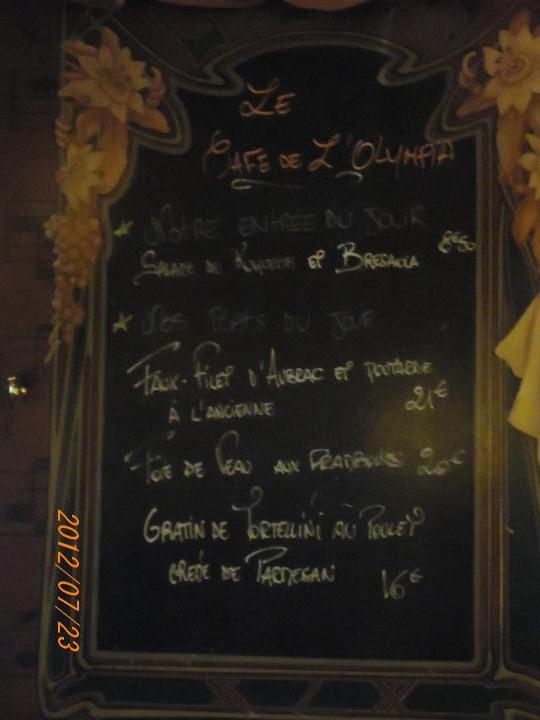 LE
CAFE DE L'OLYMPIA
NOTRE ENTREE DU JOUR
SALADE DE ROQUETTE ET BRESAOLA 8€50
NOS PLATS DU JOUR
FAUX-FILET D'AUBRAC ET MOUTARDE
À L'ANCIENNE 21€
FOIE DE VEAU AUX FRAMBOISES 20€
GRATIN DE TORTELLINI AU POULET
CREME DE PARMESAN 16€
2012/07/23